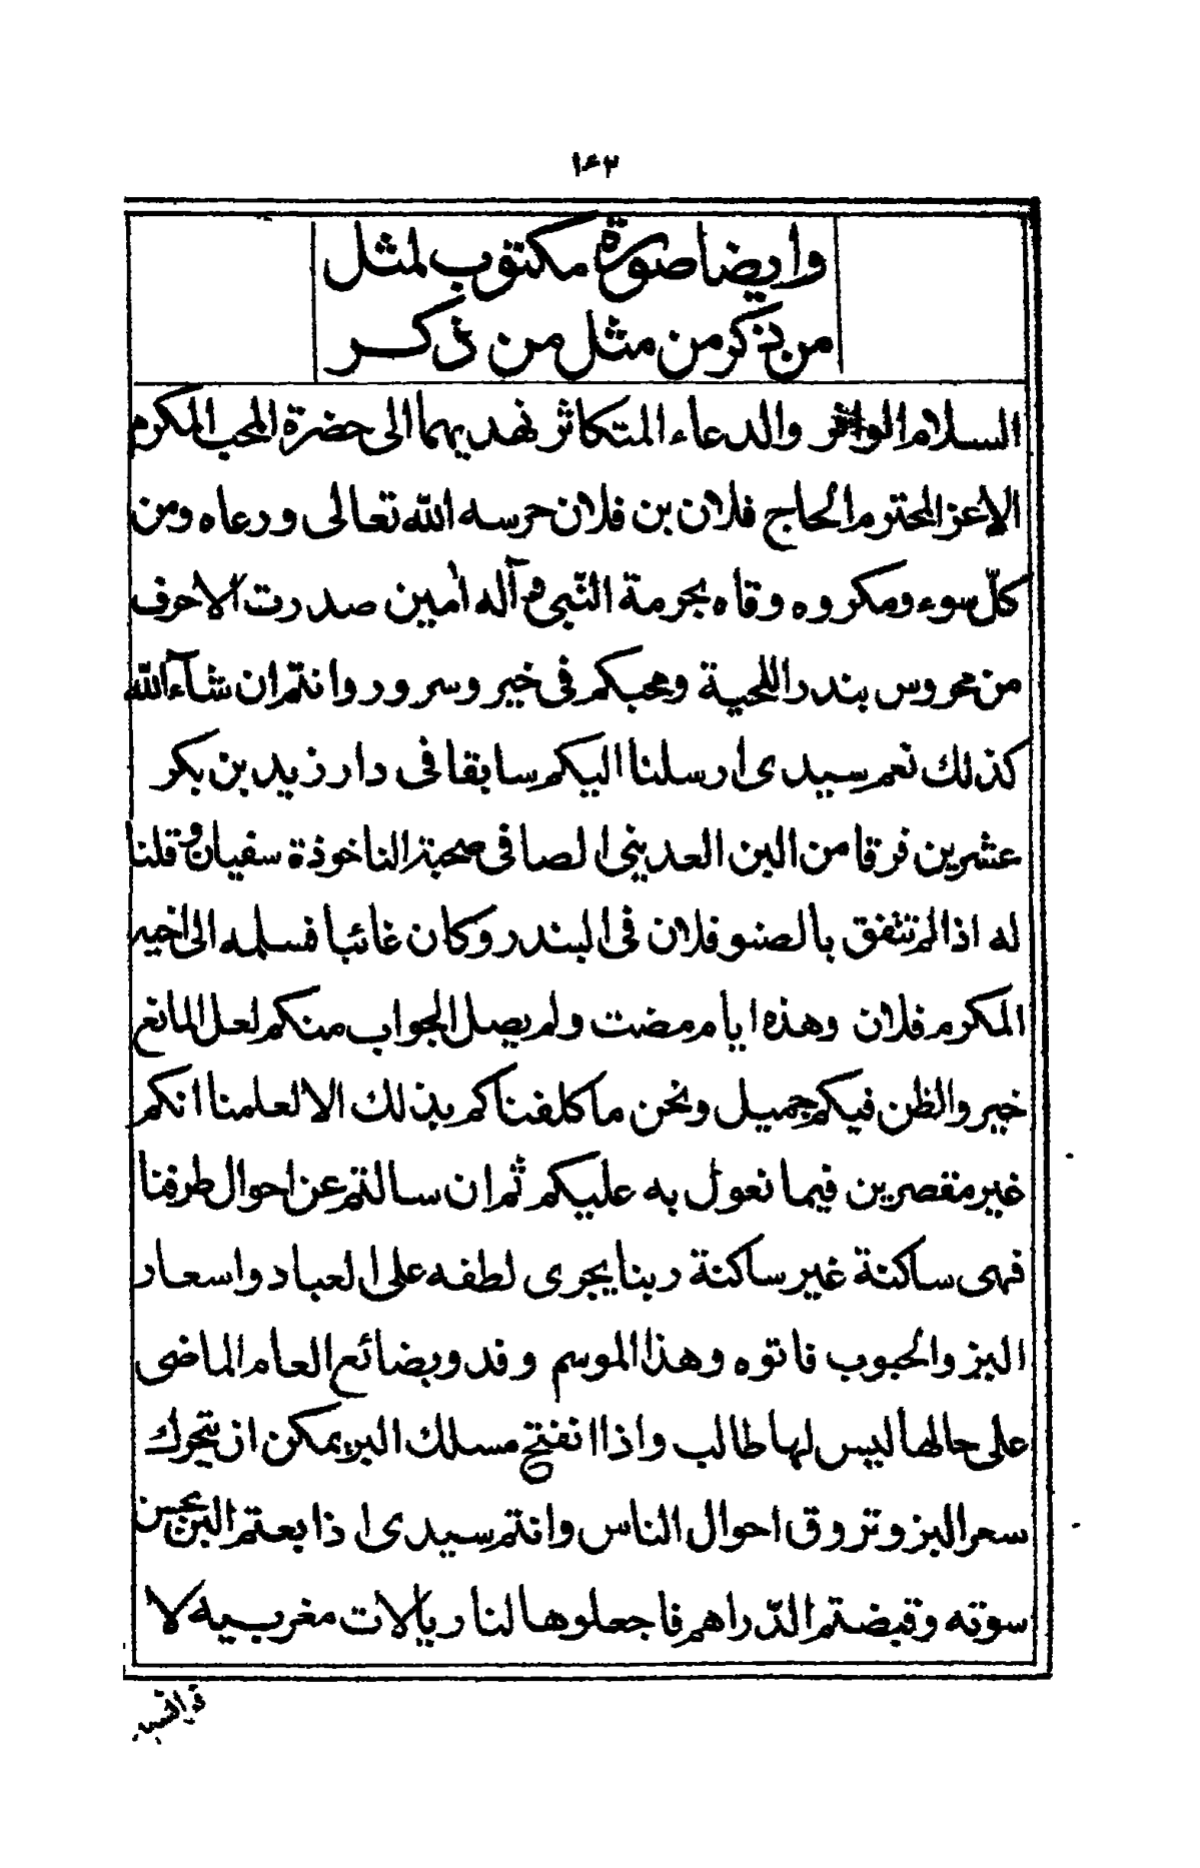 ١٤٢
وايضا صورة مكتوب لمثل
من ذكر من مثل من ذكر
السلام الوافر والدعاء المتكاثر نهديهما الى حضرة المحب المكرم
الاعز المحترم الحاج فلان بن فلان حرسه الله تعالى ورعاه ومن
كلّ سوء ومكروه وقاه بحرمة النّبى وآله امين صدرت الاحرف
من محروس بندر اللحية ومحبكم فى خير وسرور وانتم ان شآء الله
كذلك نعم سيدى ارسلنا اليكم سابقا فى دار زيد بن بكر
عشرين فرقا من البن العدينى الصافى صحبة الناخوذة سفيان وقلنا
له اذا لم تتفق بالصنو فلان فى البندر وكان غائبا فسلمه الى اخيه
المكرم فلان وهذه ايام مضت ولم يصل الجواب منكم لعل المانع
خير والظن فيكم جميل ونحن ما كلفناكم بذلك الا لعلمنا انكم
غير مقصرين فيما نعول به عليكم ثم ان سالتم عن احوال طرفنا
فهى ساكنة غير ساكنة ربنا يجرى لطفه على العباد واسعار
البز والحبوب فاتوه وهذا الموسم وفدو بضائع العام الماضى
على حالها ليس لها طالب واذا انفتح مسلك البر يمكن ان يتحرك
سعر البز وتروق احوال الناس وانتم سيدى اذا بعتم البن بحسن
سوقه وقبضتم الدّراهم فاجعلوها لنا ريالات مغربيه لا